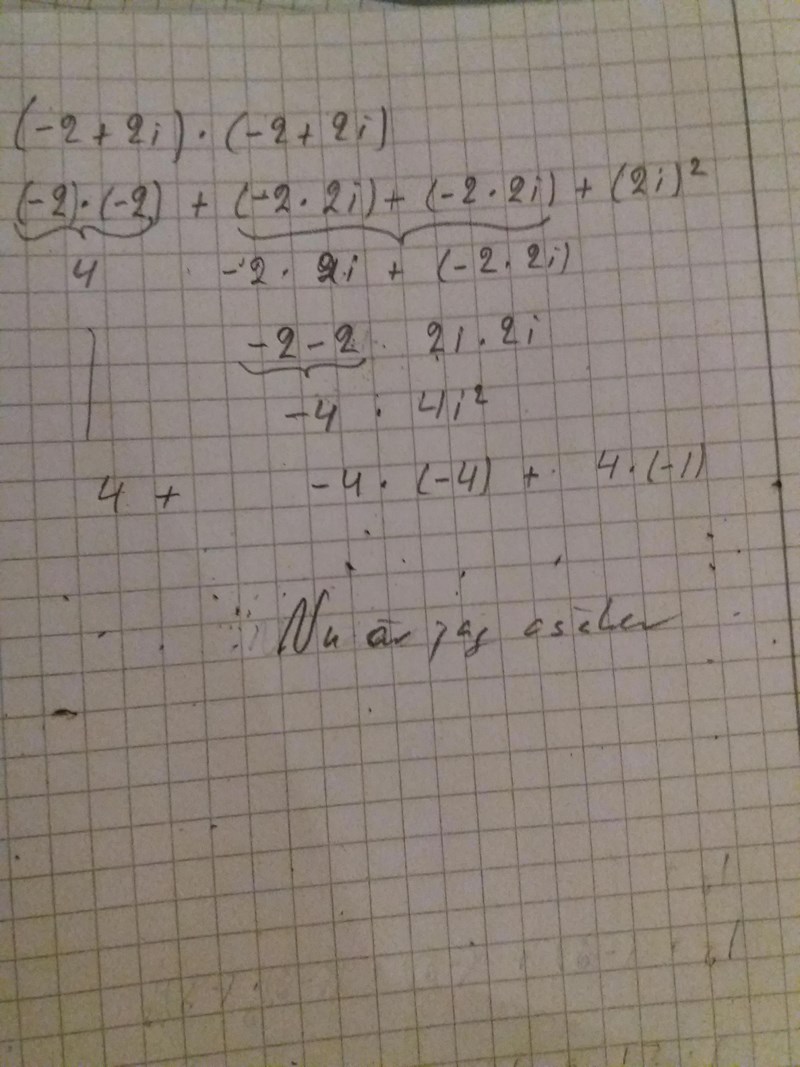 (-2 + 2i) · (-2 + 2i)
(-2) · (-2) + (-2 · 2i) + (-2 · 2i) + (2i)²
4 -2 · 2i + (-2 · 2i)
-2 - 2 · 2i · 2i
-4 · 4i²
4 + -4 · (-4) + 4 · (-1)
Nu är jag osäker